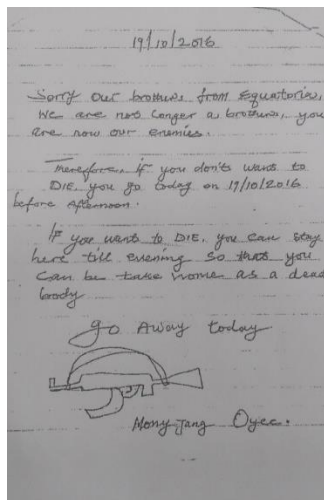 19/10/2016
Sorry Our brothers from Equatoria,
We are not longer a brothers, you
are now our enemies.
Therefore, if you don't want to
DIE, you go today on 19/10/2016
before Afternoon.
If you want to DIE, you can stay
here till evening so that you
can be take home as a dead
body
Go Away today
Mony-Jang Oyee.